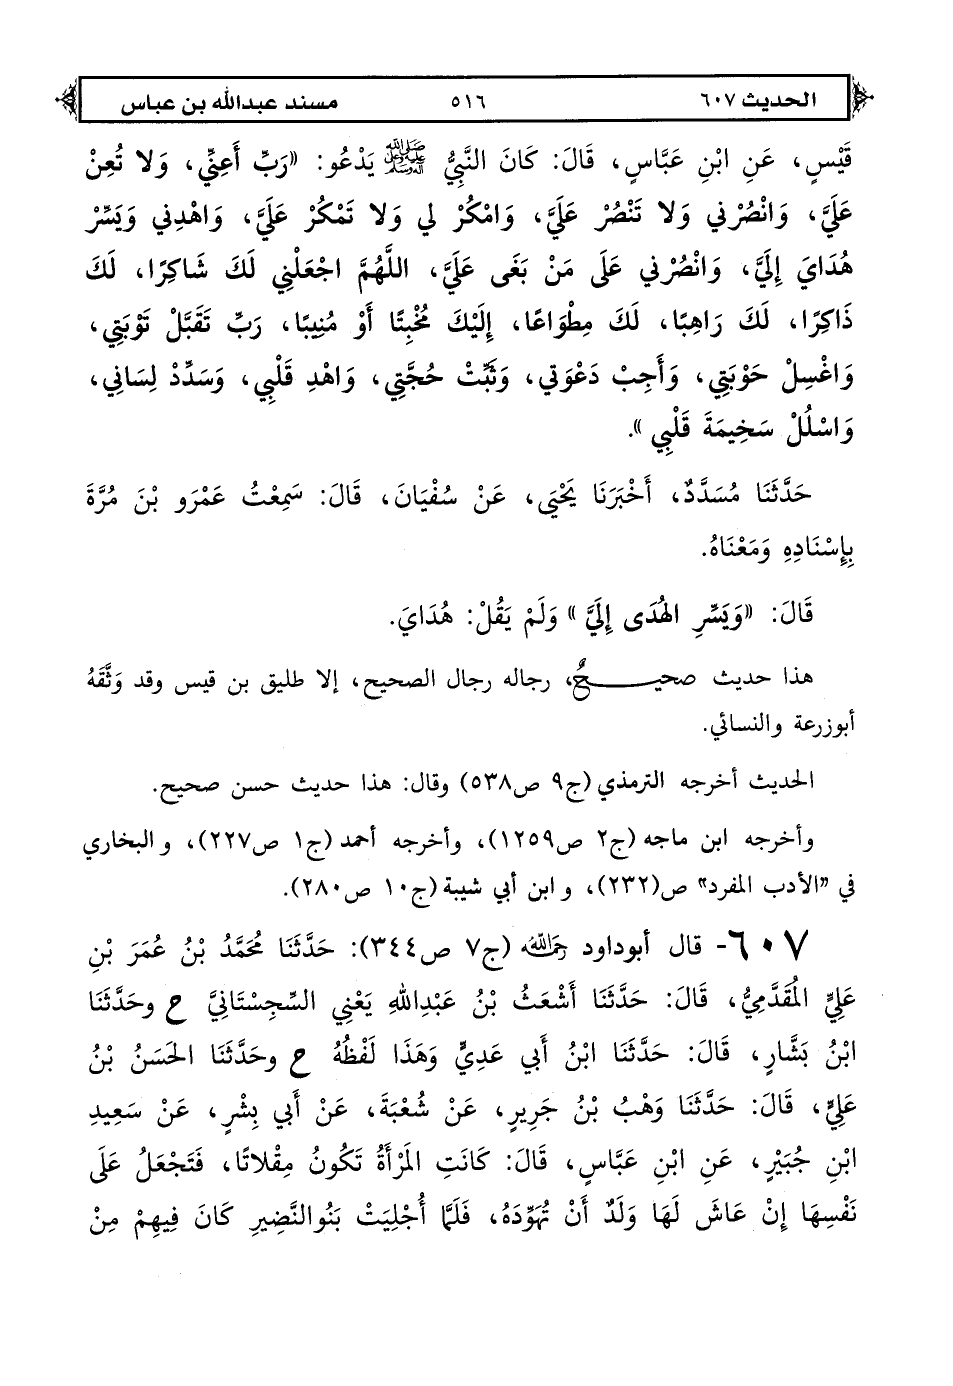 الحديث ٦٠٧ ٥١٦ مسند عبدالله بن عباس
قَيْسٍ، عَنِ ابْنِ عَبَّاسٍ، قَالَ: كَانَ النَّبِيُّ ﷺ يَدْعُو: «رَبِّ أَعِنِّي، وَلا تُعِنْ
عَلَيَّ، وَانْصُرْنِي وَلا تَنْصُرْ عَلَيَّ، وَامْكُرْ لِي وَلا تَمْكُرْ عَلَيَّ، وَاهْدِنِي وَيَسِّرْ
هُدَايَ إِلَيَّ، وَانْصُرْنِي عَلَى مَنْ بَغَى عَلَيَّ، اللَّهُمَّ اجْعَلْنِي لَكَ شَاكِرًا، لَكَ
ذَاكِرًا، لَكَ رَاهِبًا، لَكَ مِطْوَاعًا، إِلَيْكَ مُخْبِتًا أَوْ مُنِيبًا، رَبِّ تَقَبَّلْ تَوْبَتِي،
وَاغْسِلْ حَوْبَتِي، وَأَجِبْ دَعْوَتِي، وَثَبِّتْ حُجَّتِي، وَاهْدِ قَلْبِي، وَسَدِّدْ لِسَانِي،
وَاسْلُلْ سَخِيمَةَ قَلْبِي».
حَدَّثَنَا مُسَدَّدٌ، أَخْبَرَنَا يَحْيَى، عَنْ سُفْيَانَ، قَالَ: سَمِعْتُ عَمْرَو بْنَ مُرَّةَ
بِإِسْنَادِهِ وَمَعْنَاهُ.
قَالَ: «وَيَسِّرِ الهُدَى إِلَيَّ» وَلَمْ يَقُلْ: هُدَايَ.
هذا حديث صحيـــــحٌ، رجاله رجال الصحيح، إلا طليق بن قيس وقد وَثَّقَهُ
أبوزرعة والنسائي.
الحديث أخرجه الترمذي (ج٩ ص٥٣٨) وقال: هذا حديث حسن صحيح.
وأخرجه ابن ماجه (ج٢ ص١٢٥٩)، وأخرجه أحمد (ج١ ص٢٢٧)، والبخاري
في "الأدب المفرد" ص(٢٣٢)، وابن أبي شيبة (ج١٠ ص٢٨٠).
٦٠٧- قال أبوداود رحمه الله (ج٧ ص٣٤٤): حَدَّثَنَا مُحَمَّدُ بْنُ عُمَرَ بْنِ
عَلِيٍّ المُقَدَّمِيُّ، قَالَ: حَدَّثَنَا أَشْعَثُ بْنُ عَبْدِاللهِ يَعْنِي السِّجِسْتَانِيَّ ح وحَدَّثَنَا
ابْنُ بَشَّارٍ، قَالَ: حَدَّثَنَا ابْنُ أَبِي عَدِيٍّ وَهَذَا لَفْظُهُ ح وحَدَّثَنَا الحَسَنُ بْنُ
عَلِيٍّ، قَالَ: حَدَّثَنَا وَهْبُ بْنُ جَرِيرٍ، عَنْ شُعْبَةَ، عَنْ أَبِي بِشْرٍ، عَنْ سَعِيدِ
ابْنِ جُبَيْرٍ، عَنِ ابْنِ عَبَّاسٍ، قَالَ: كَانَتِ المَرْأَةُ تَكُونُ مِقْلاتًا، فَتَجْعَلُ عَلَى
نَفْسِهَا إِنْ عَاشَ لَهَا وَلَدٌ أَنْ تُهَوِّدَهُ، فَلَمَّا أُجْلِيَتْ بَنُوالنَّضِيرِ كَانَ فِيهِمْ مِنْ